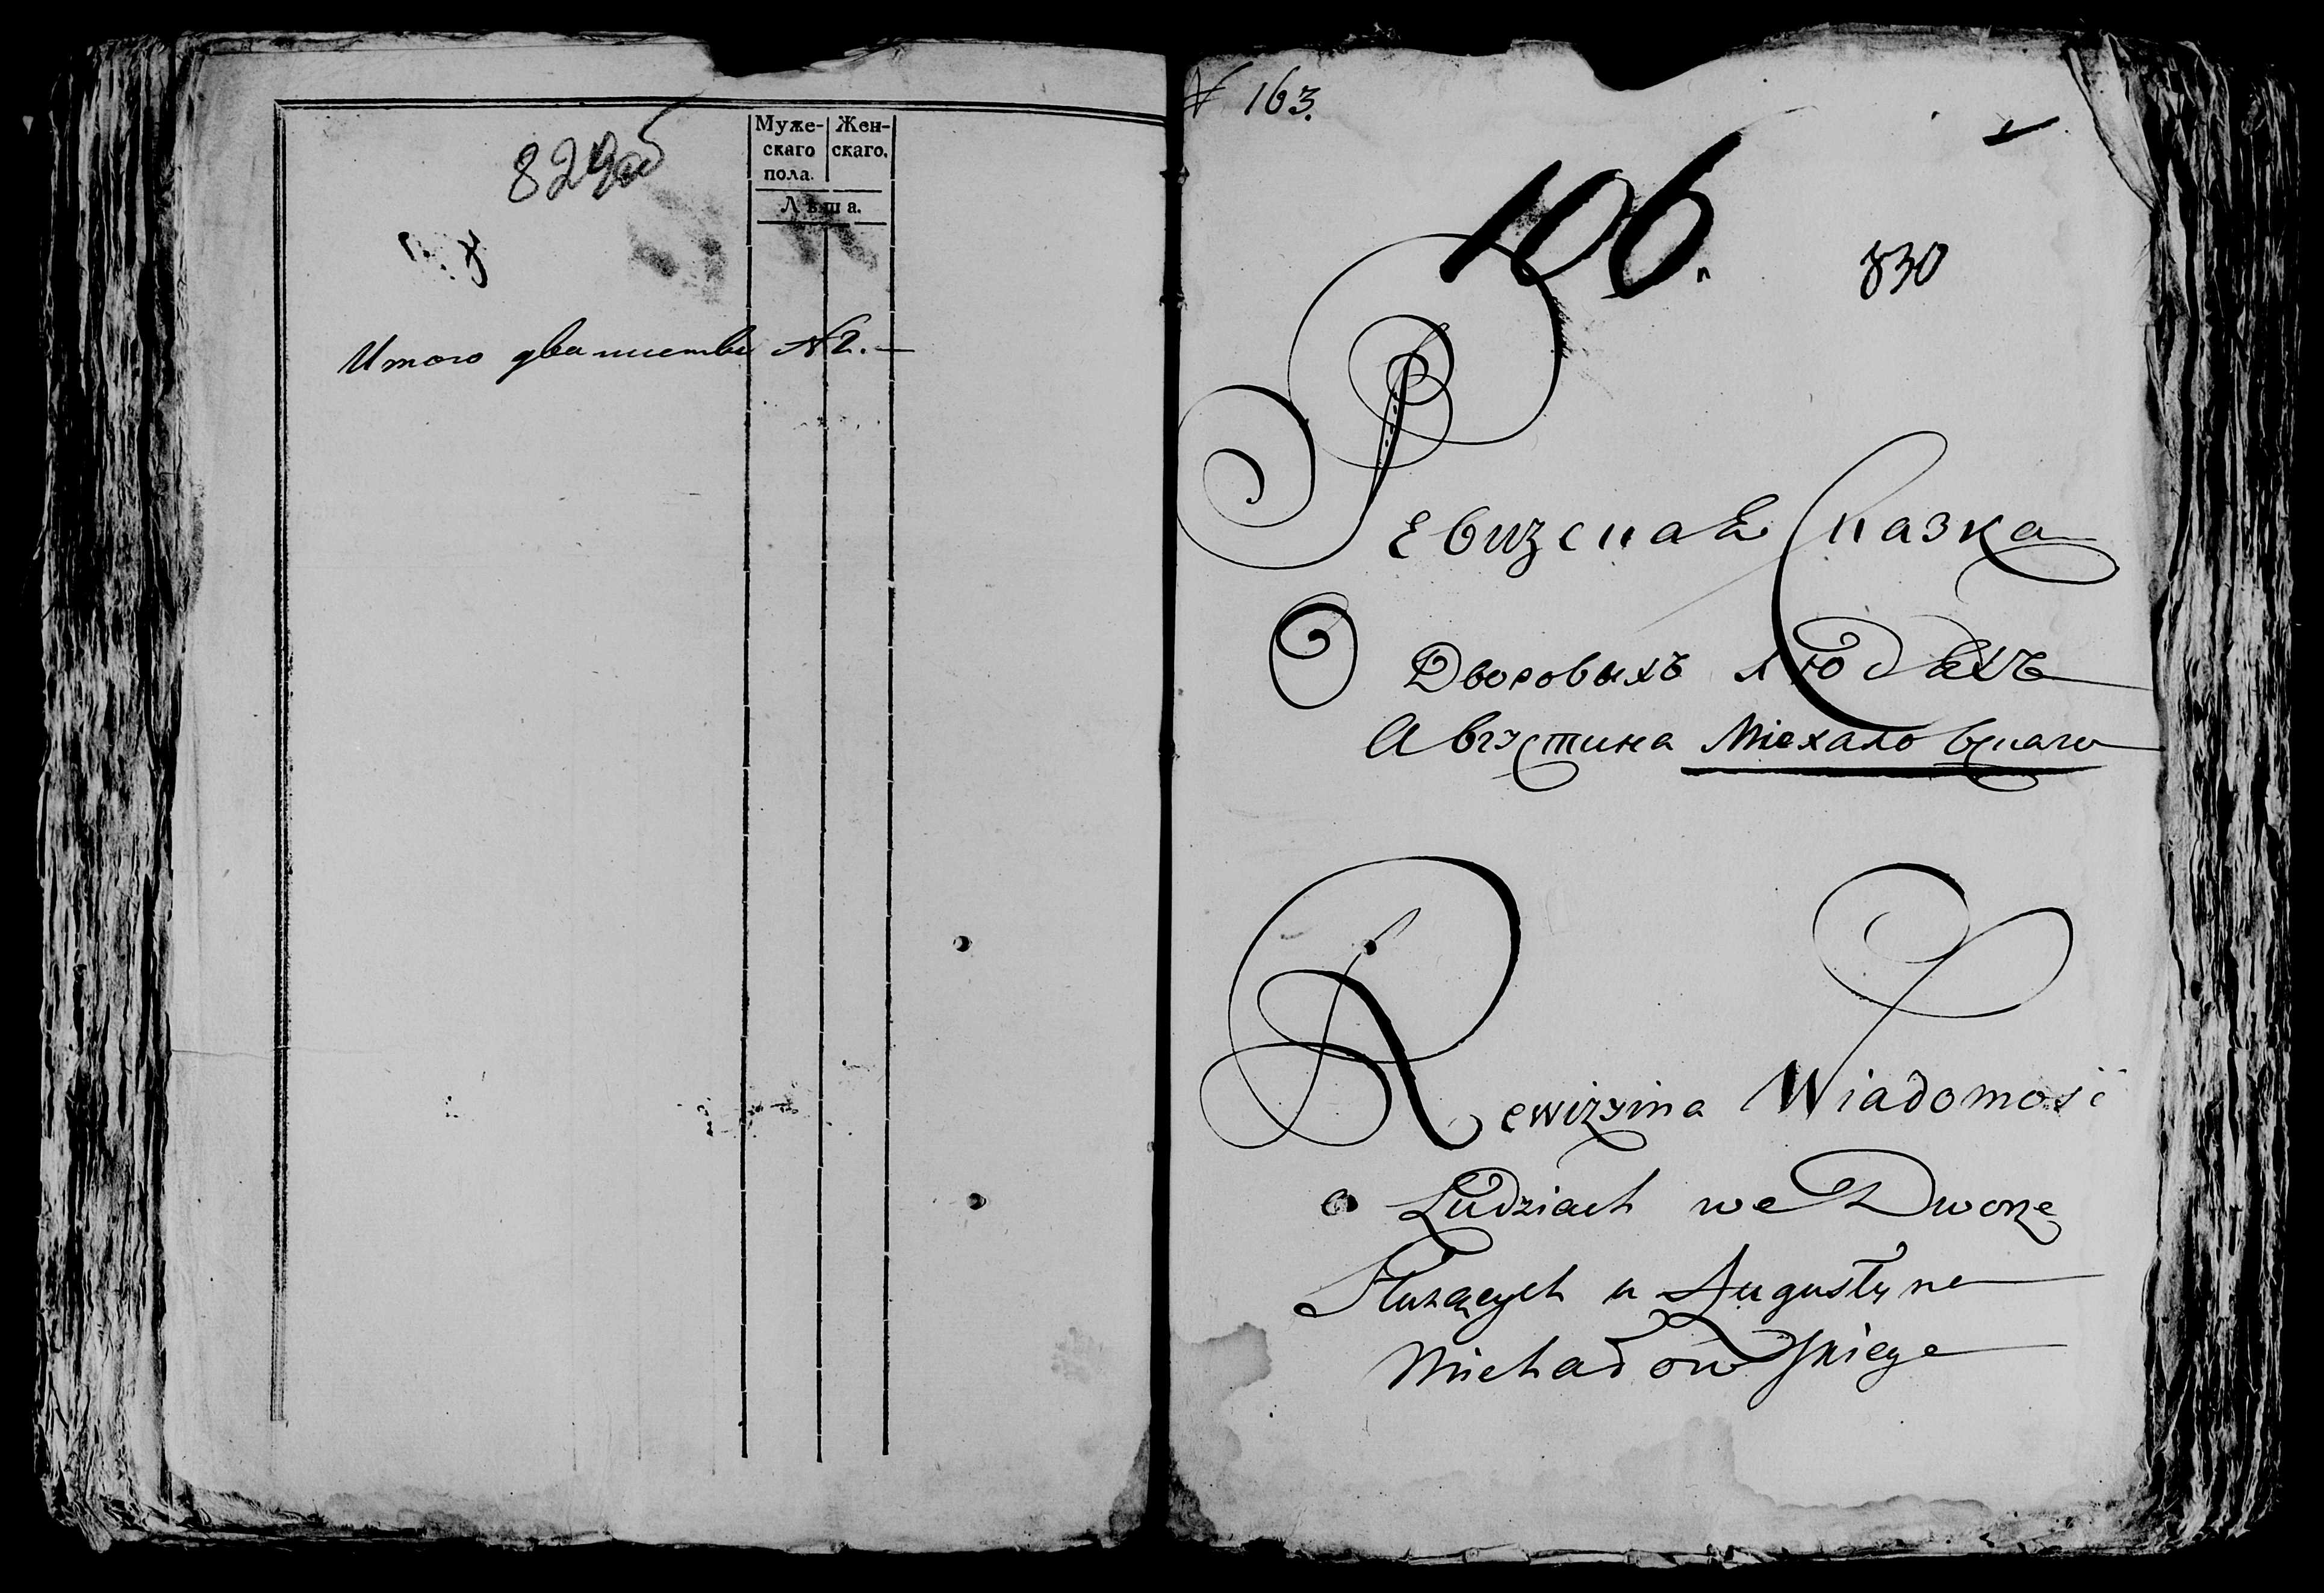 829об
Муже-
скаго
пола.
Жен-
скаго.
Лѣта.
Итого два листа № 2.
№ 163.
106.
830
Ревизскаѣ Сказка
О Дворовыхъ людѣхъ
Августина Михаловскаго
Rewizyina Wiadomość
o Ludziach we Dworze
Służących u Augustyna
Michałowskiego